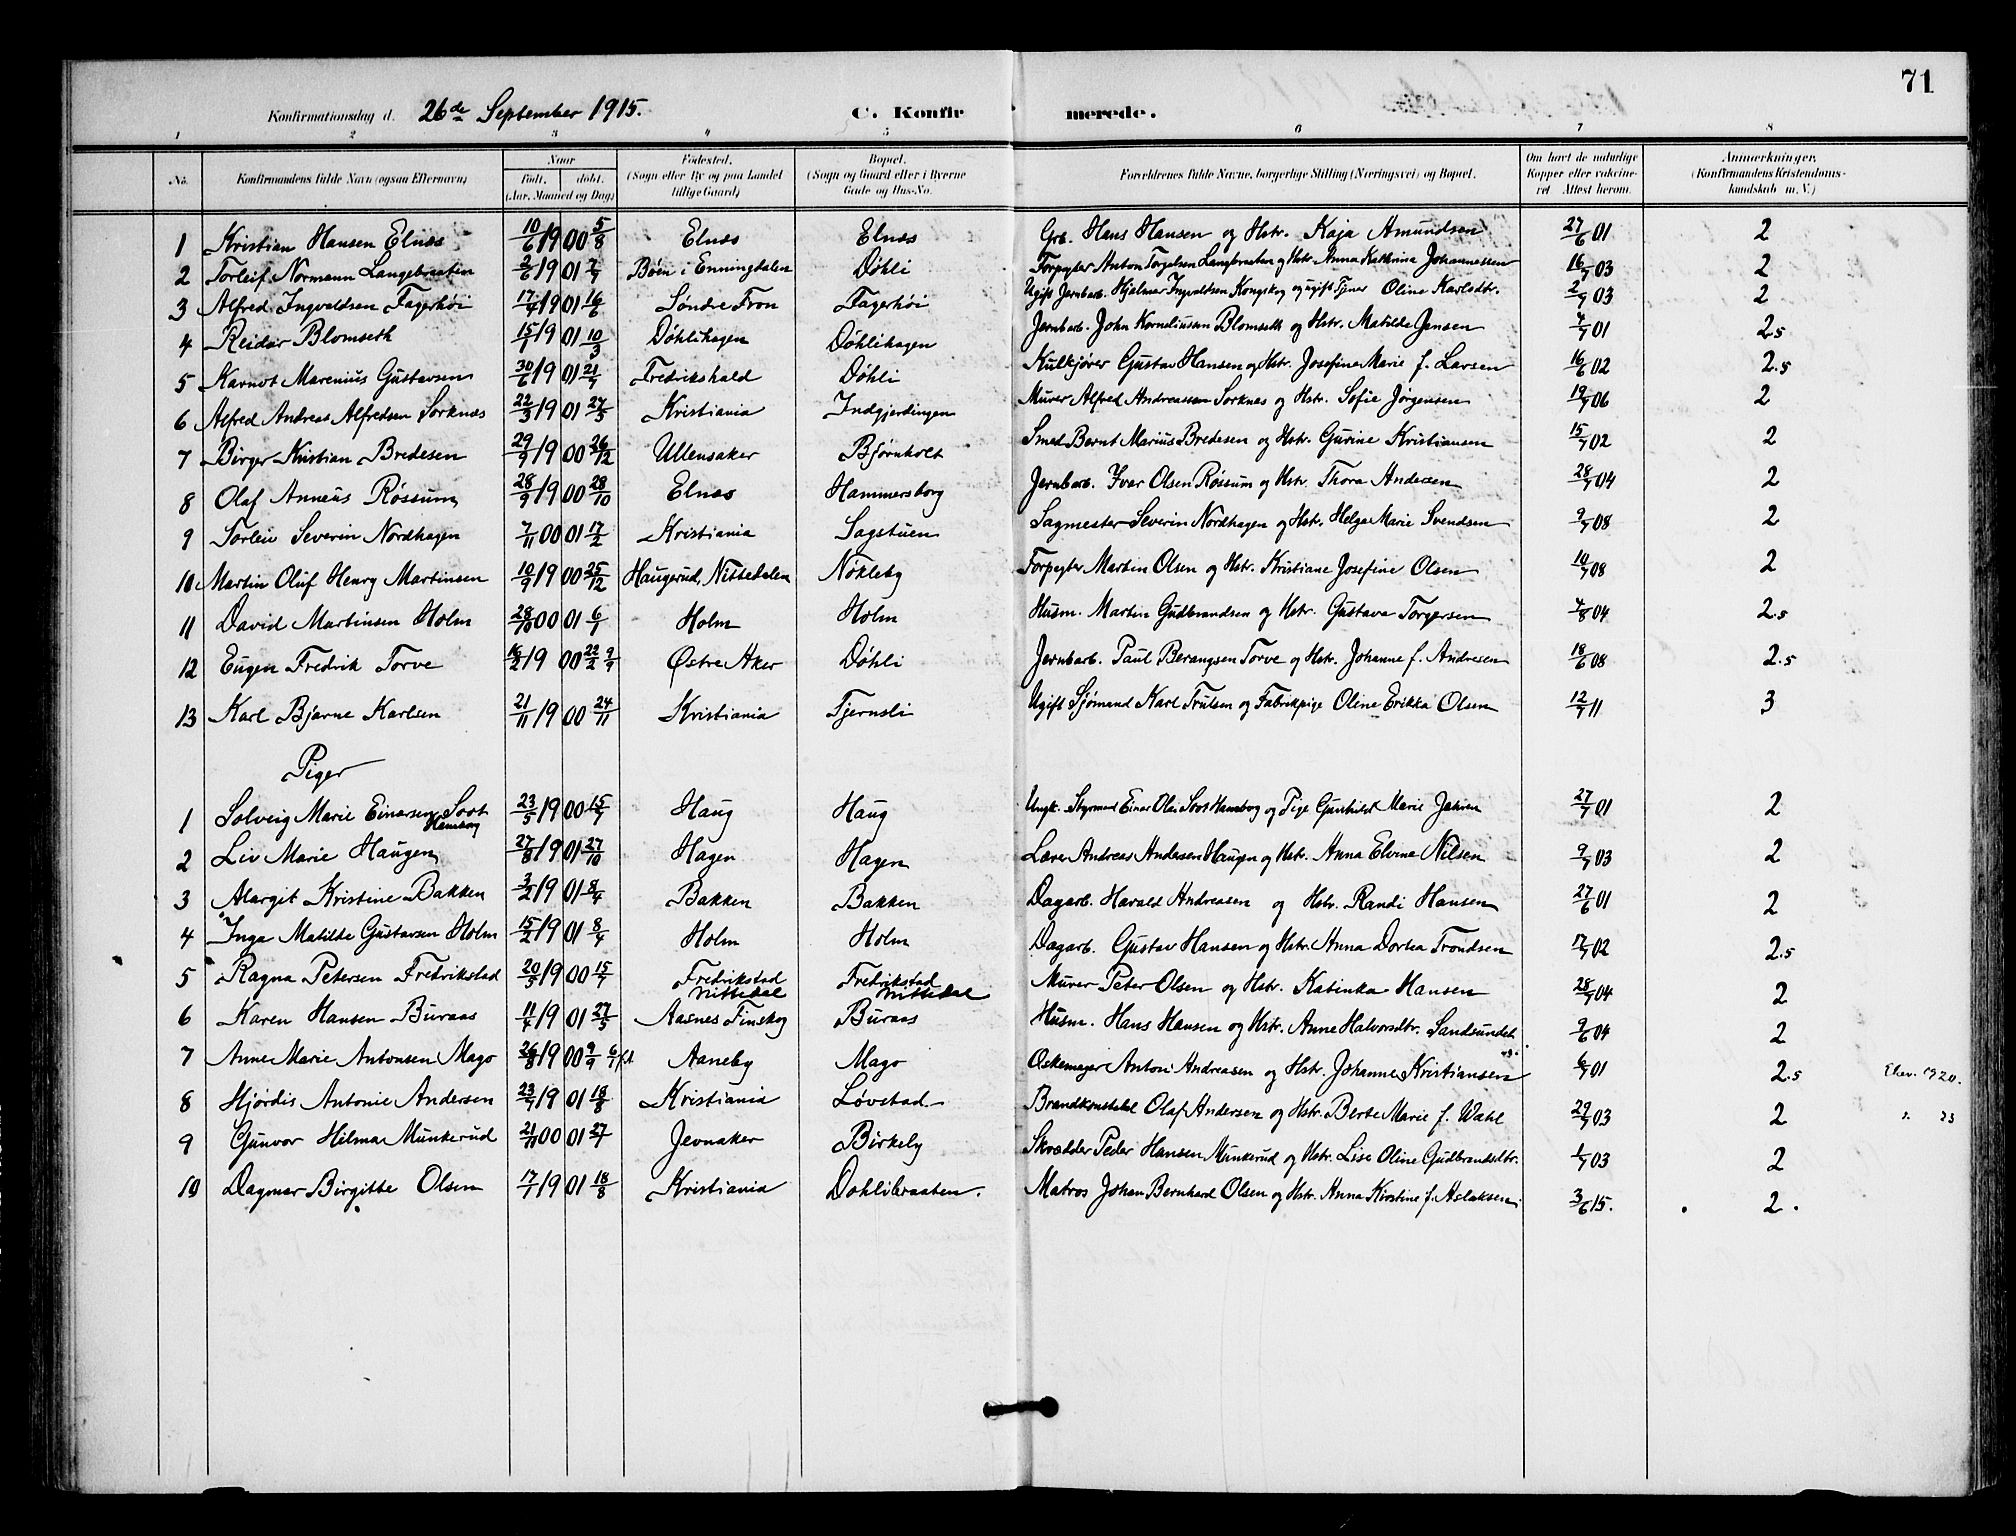 71
Konfirmationsdag d. 26de September 1915. C. Konfirmerede.
1 2 3 4 5 6 7 8
No. Konfirmandens fulde Navn (ogsaa Efternavn) Naar født. døbt. (Aar, Maaned og Dag) Fødested. (Sogn eller By og paa Landet tillige Gaard) Bopæl. (Sogn og Gaard eller i Byerne Gade og Hus-No. Forældrenes fulde Navne, borgerlige Stilling (Næringsvei) og Bopæl. Om havt de naturlige Kopper eller vakcineret Attest herom. Anmerkninger. (Konfirmandens Kristendomskundskab m. V.)
1 Kristian Hansen Elnæs 10/6 1900 5/8 Elnæs Elnæs Grb. Hans Hansen og Hstr. Kaja Amundsen 27/6 01 2
2 Torleif Normann Langebraaten 2/6 1901 7/7 Bøen i Enningdalen Døhli Forpagter Anton Torgelsen Langbraaten og Hstr. Anna Kathrine Johannessen 16/9 03 2
3 Alfred Ingvaldsen Fagerhøi 17/4 1901 16/6 Søndre Fron Fagerhøi Ugift Jernbarb. Hjalmar Ingvaldsen Kongskog og ugift Tjener Oline Karlsdtr. 2/9 03 2
4 Reidar Blomseth 15/1 1901 10/3 Døhlihagen Døhlihagen Jernbarb. John Korneliussen Blomseth og Hstr. Matilde Jensen 4/7 01 2.5
5 Karnot Marenius Gustavsen 30/6 1901 21/7 Fredrikshald Døhli Kulkjører Gustav Hansen og Hstr. Josefine Marie f. Larsen 16/6 02 2.5
6 Alfred Andreas Alfredsen Sorknæs 22/3 1901 27/5 Kristiania Indgjerdingen Murer Alfred Andreassen Sorknes og Hstr. Sofie Jørgensen 19/7 06 2
7 Birger Kristian Bredesen 29/9 1900 26/12 Ullensaker Bjørnholt Smed Bernt Marius Bredesen og Hstr. Gurine Kristiansen 15/7 02 2
8 Olaf Anneus Røssum 28/9 1900 28/10 Elnæs Hammersborg Jernbarb. Ivar Olsen Røssum og Hstr. Thora Andersen 28/7 04 2
9 Torleiv Severin Nordhagen 7/11 00 01 17/2 Kristiania Sagstuen Sagmester Severin Nordhagen og Hstr. Helga Marie Svendsen 9/7 08 2
10 Martin Oluf Henry Martinsen 10/9 1900 25/12 Haugerud, Nittedalen Nökleby Forpagter Martin Olsen og Hstr. Kristiane Josefine Olsen 10/7 08 2
11 David Martinsen Holm 28/10 00 01 6/1 Holm Holm Husm. Martin Gudbrandsen og Hstr. Gustava Torgersen 4/8 04 2.5
12 Eugen Fredrik Torve 16/2 1900 22/2 9/9 Østre Aker Döhli Jernbarb. Paul Berangsen Torve og Hstr. Johanne f. Andresen 18/6 08 2.5
13 Karl Bjarne Karlsen 21/11 1900 24/11 Kristiania Tjernsli Ugift Sjømand Karl Trulsen og Fabrikpige Oline Erikka Olsen 12/7 11 3
Piger
1 Solveig Marie Einarsen Soot Hamborg 23/5 1900 15/7 Haug Haug Ungk. Styrmand Einar Olai Soot Hamborg og Pige Gunhilde Marie Jensen 27/7 01 2
2 Liv Marie Haugen 27/8 1901 27/10 Hagen Hagen Lærer Andreas Andersen Haugen og Hstr. Anna Elvine Nilsen 9/7 03 2
3 Margit Kristine Bakken 3/2 1901 8/4 Bakken Bakken Dagarb. Harald Andreasen og Hstr. Randi Hansen 27/6 01 2
4 Inga Matilde Gustavsen Holm 15/2 1901 8/4 Holm Holm Dagarb. Gustav Hansen og Hstr. Anna Dortea Trondsen 17/7 02 2.5
5 Ragna Petersen Fredrikstad 20/5 1900 15/7 Fredrikstad Nittedal Fredrikstad Nittedal Murer Peter Olsen og Hstr. Katinka Hansen 28/7 04 2
6 Karen Hansen Buraas 11/4 1901 27/5 Aasnes Finskog Buraas Husm. Hans Hansen og Hstr. Anne Halvorsdtr. Sandsundet 9/6 04 2
7 Anne Marie Antonsen Mago 26/8 1900 9/9 Aaneby Mago Øskemager Anton Andreasen og Hstr. Johanne Kristiansen 6/7 01 2.5 1920.
8 Hjördis Antonie Andersen 23/7 1901 18/8 Kristiania Løvstad Brandkonstabel Olaf Andersen og Hstr. Berte Marie f. Wahl 29/7 03 2
9 Gunvor Hilma Munkerud 21/11 00 01 27/1 Jevnaker Birkely Skrædder Peder Hansen Munkerud og Hstr. Lise Oline Gudbrandsdtr. 1/7 03 2
10 Dagmar Birgitte Olsen 17/7 1901 18/8 Kristiania Dohlibraaten. Matros Johan Bernhard Olsen og Hstr. Anna Kirstine f. Aslaksen 3/6 15. 2.